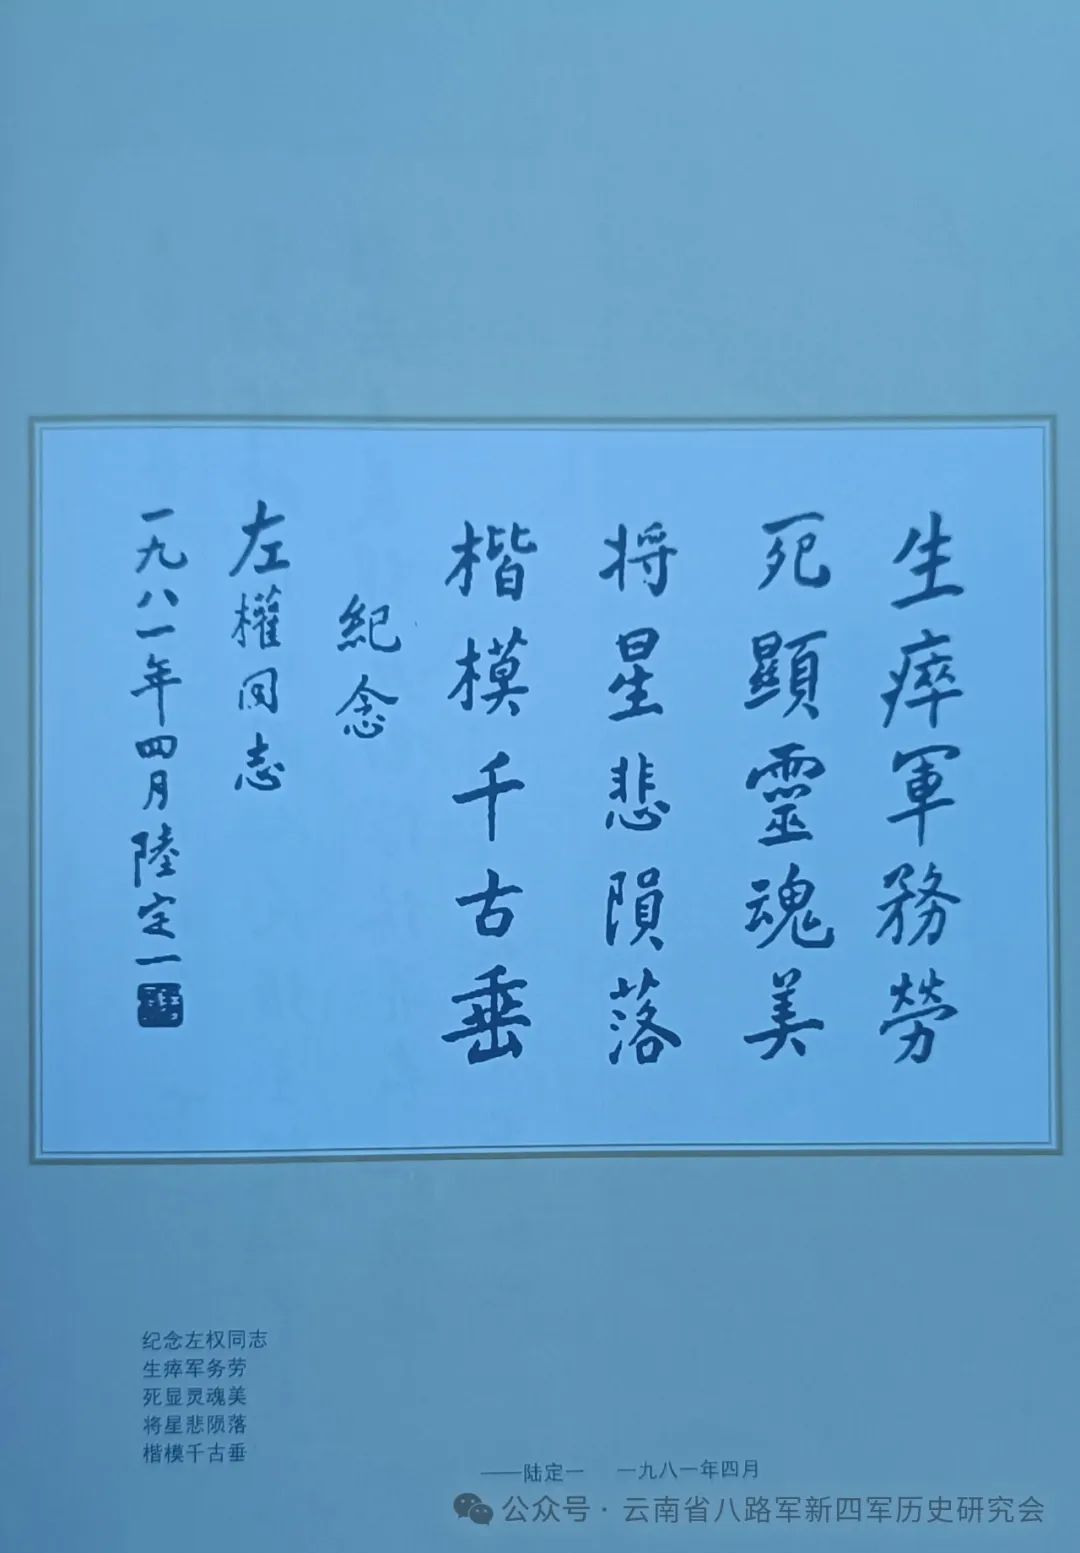 生瘁軍務勞
死顯靈魂美
将星悲隕落
楷模千古垂
紀念
左權同志
一九八一年四月陸定一
纪念左权同志
生瘁军务劳
死显灵魂美
将星悲陨落
楷模千古垂
——陆定一 一九八一年四月
公众号·云南省八路军新四军历史研究会